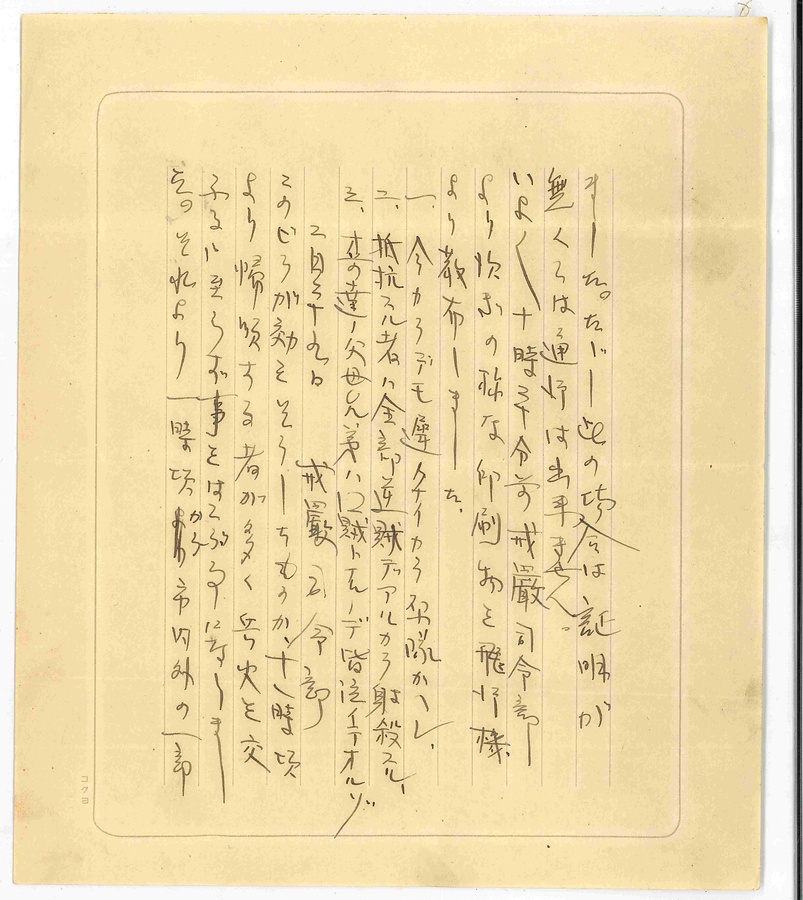 ました。たゞし此の場合は証明が
無くては通行は出来ません。
いよ〱十時三十分前戒嚴司令部
より次、の様な印刷物を飛行機
より散布しました。
一、今カラデモ遅クナイカラ原隊カヘレ、
二、抵抗スル者ハ全部逆賊デアルカラ射殺スル、
三、オ前達ノ父母兄弟ハ国賊トナルノデ皆泣イテオルゾ
二月二十九日 戒嚴司令部
このビラが効をそうしたものか、十一時頃
より帰順する者が多く兵火を交
ふるに至らず事をはこぶ事になりまし
た。それより一時頃から市内外の一部
コクヨ